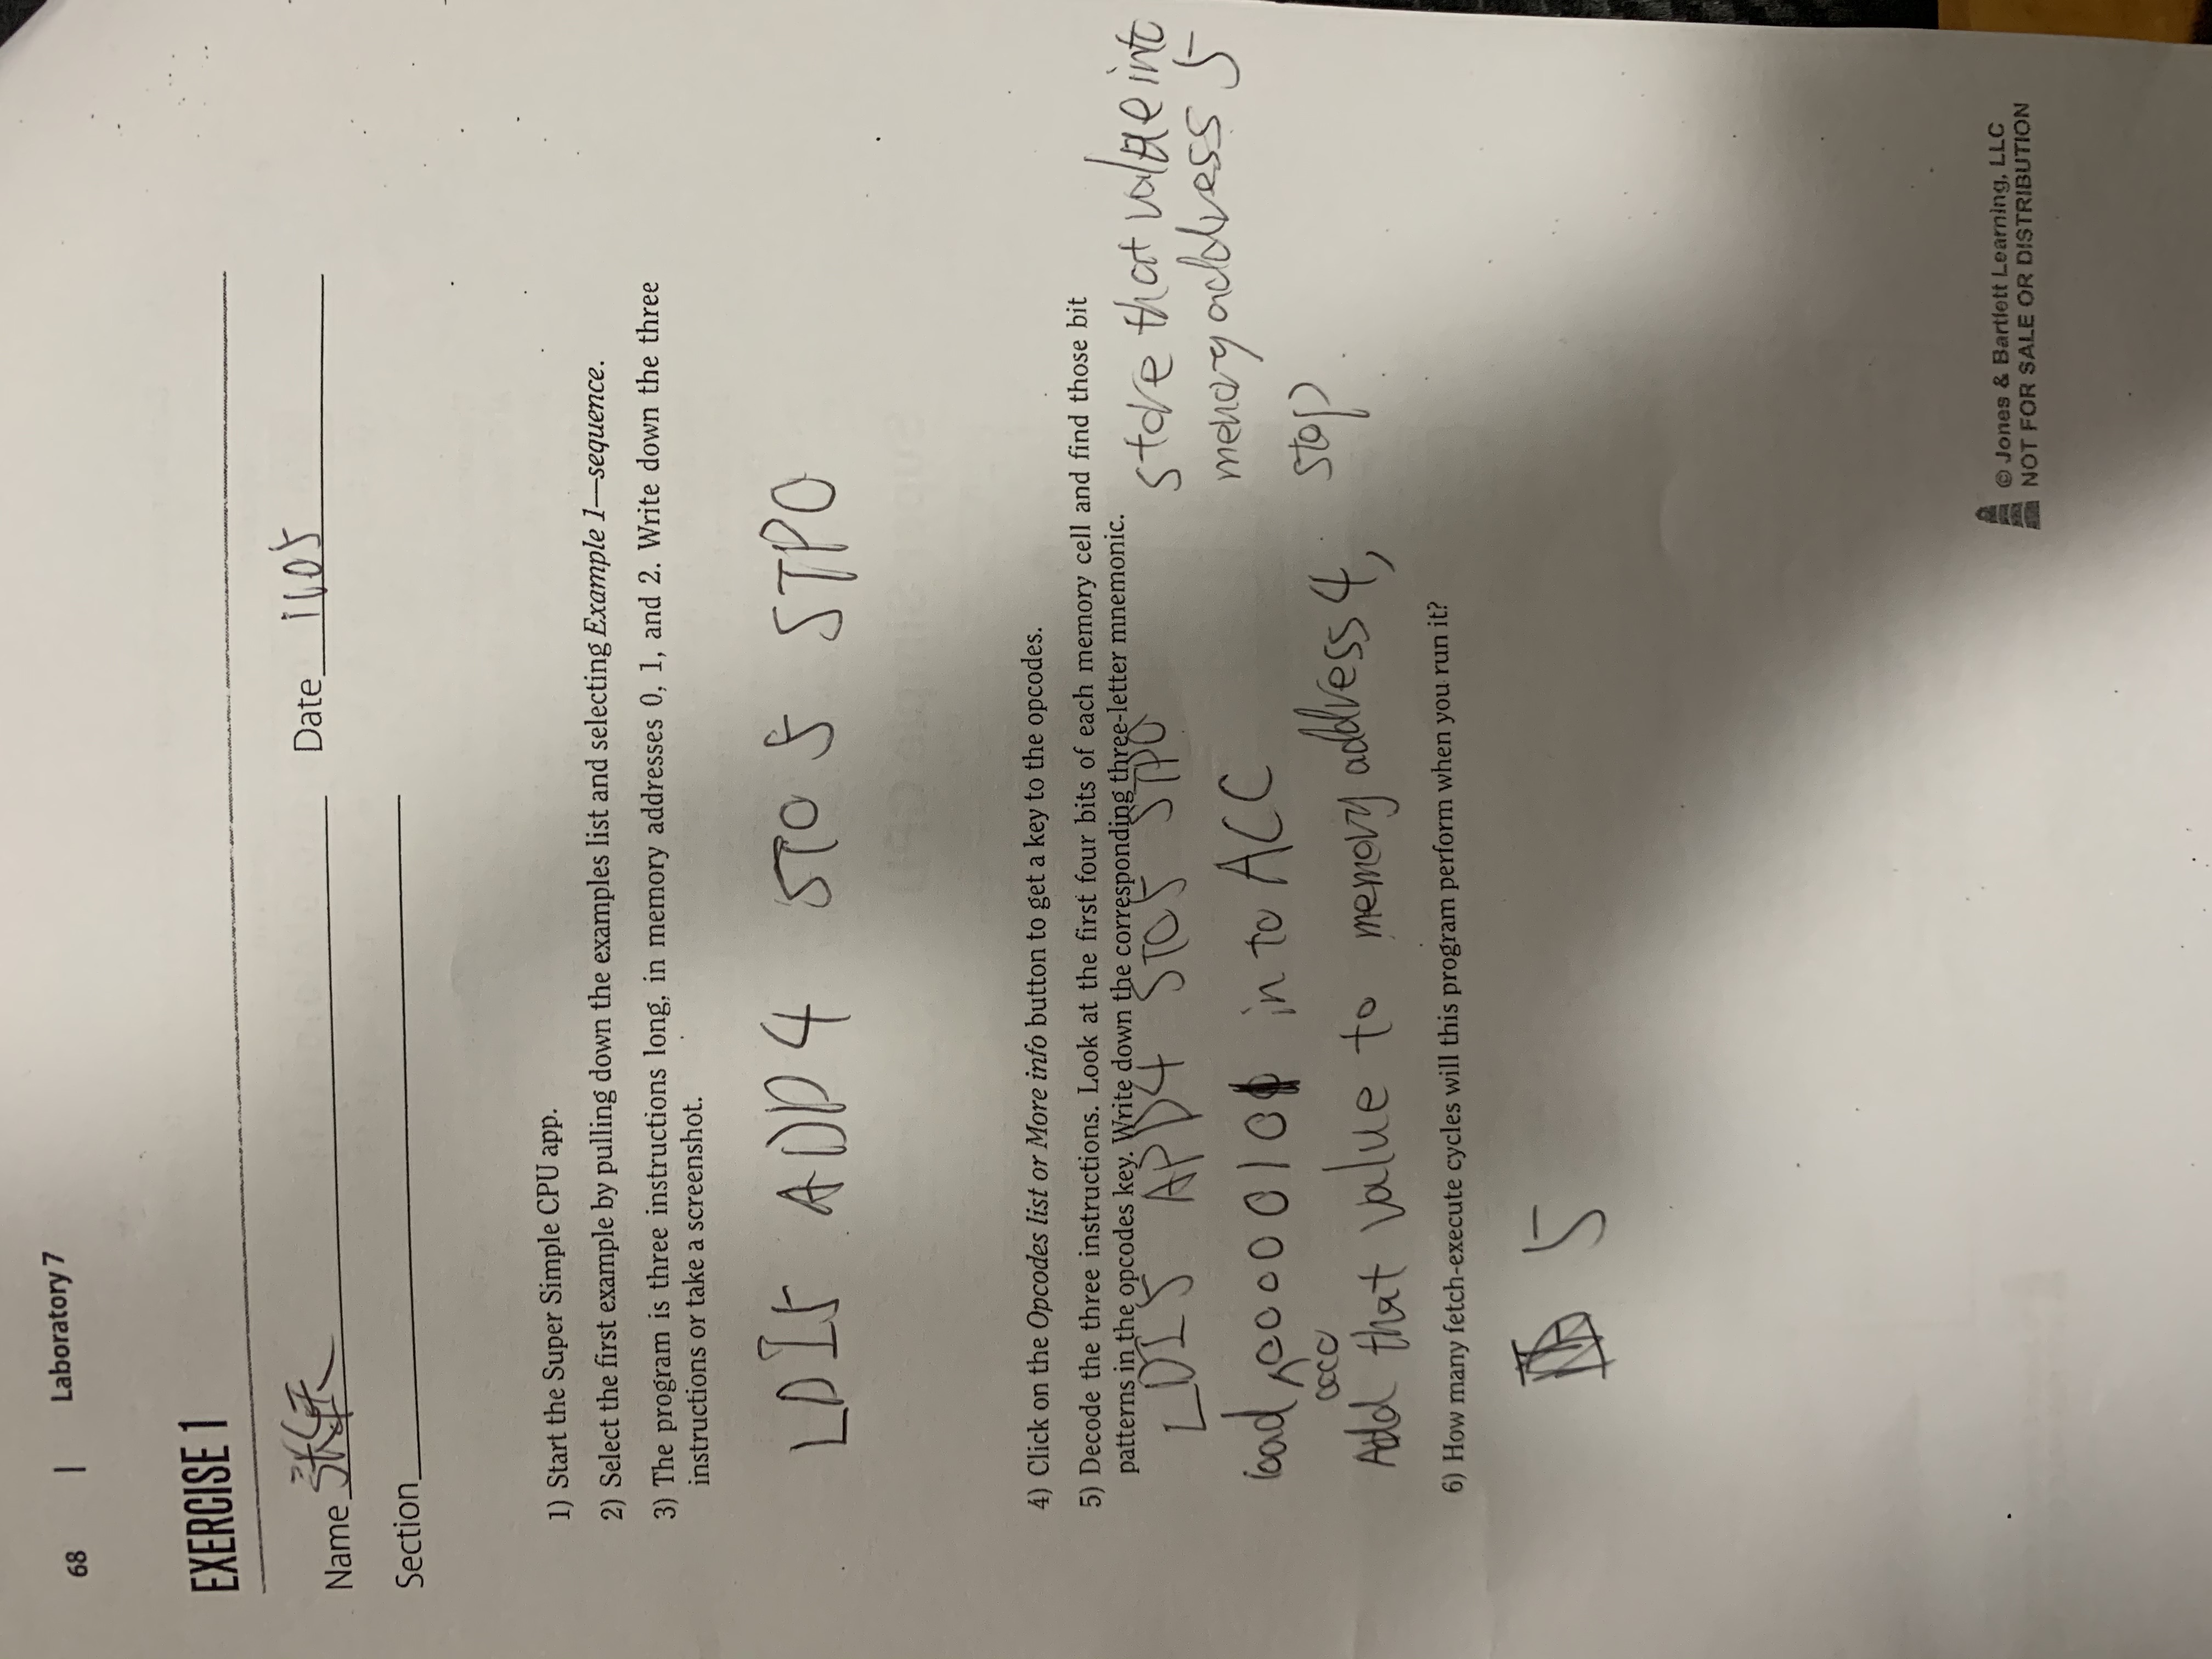 68 | Laboratory 7
EXERCISE 1
Name 张 Date 1105
Section
1) Start the Super Simple CPU app.
2) Select the first example by pulling down the examples list and selecting Example 1—sequence.
3) The program is three instructions long, in memory addresses 0, 1, and 2. Write down the three
instructions or take a screenshot.
LDI5 ADD 4 STO 5 STPO
4) Click on the Opcodes list or More info button to get a key to the opcodes.
5) Decode the three instructions. Look at the first four bits of each memory cell and find those bit
patterns in the opcodes key. Write down the corresponding three-letter mnemonic.
LDI5 ADD4 STO5 STPO
load 00000101 in to ACC
0000
Add that value to memory address 4,
store that value into
memory address 5
stop.
6) How many fetch-execute cycles will this program perform when you run it?
5
© Jones & Bartlett Learning, LLC
NOT FOR SALE OR DISTRIBUTION